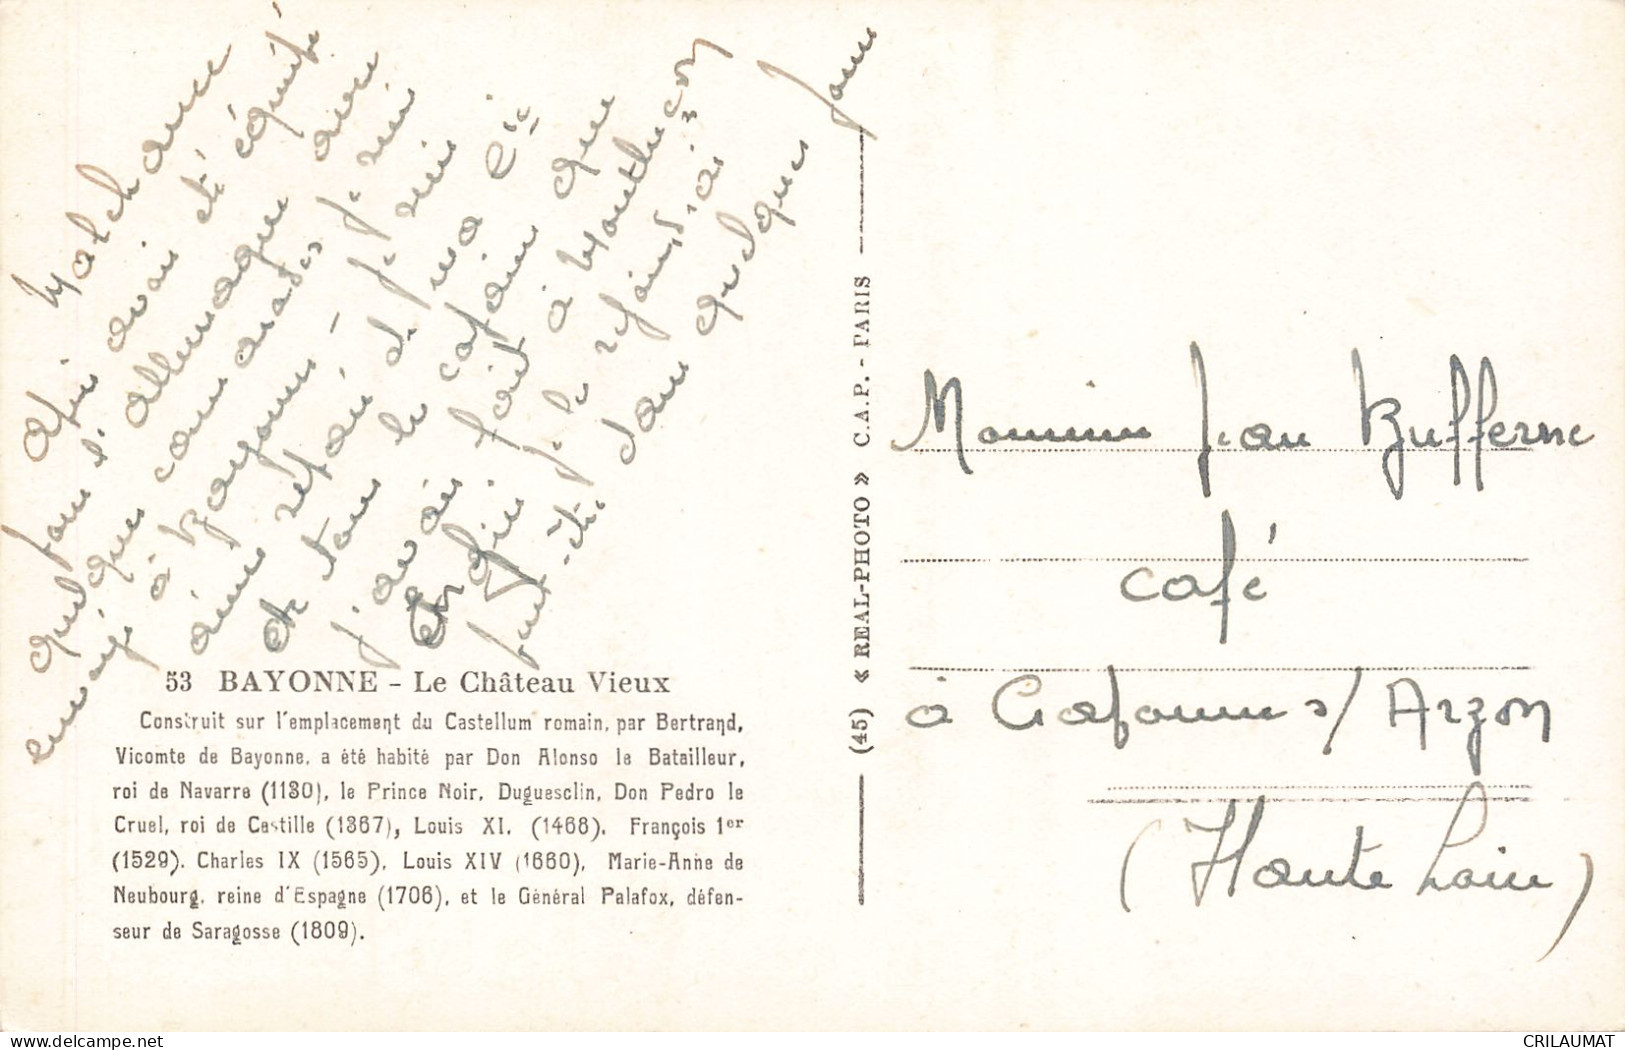 Malchance
après avoir été équipé
pour l'allemagne avec
quelques camarades je suis
envoyé à Bayonne - je suis
séparé de ma Cie
et tous les copains que
j'avais fait à Montluçon
Enfin je le rejoindrai
peut-être dans quelques jours
53 BAYONNE - Le Château Vieux
Construit sur l'emplacement du Castellum romain, par Bertrand,
Vicomte de Bayonne, a été habité par Don Alonso le Batailleur,
roi de Navarre (1130), le Prince Noir, Duguesclin, Don Pedro le
Cruel, roi de Castille (1367), Louis XI. (1468). François 1er
(1529). Charles IX (1565), Louis XIV (1660), Marie-Anne de
Neubourg, reine d'Espagne (1706), et le Général Palafox, défen-
seur de Saragosse (1809).
(45) « REAL-PHOTO » C.A.P. - PARIS
Monsieur Jean Bufferne
Café
à Craponne s/ Arzon
(Haute Loire)
CRILAUMAT